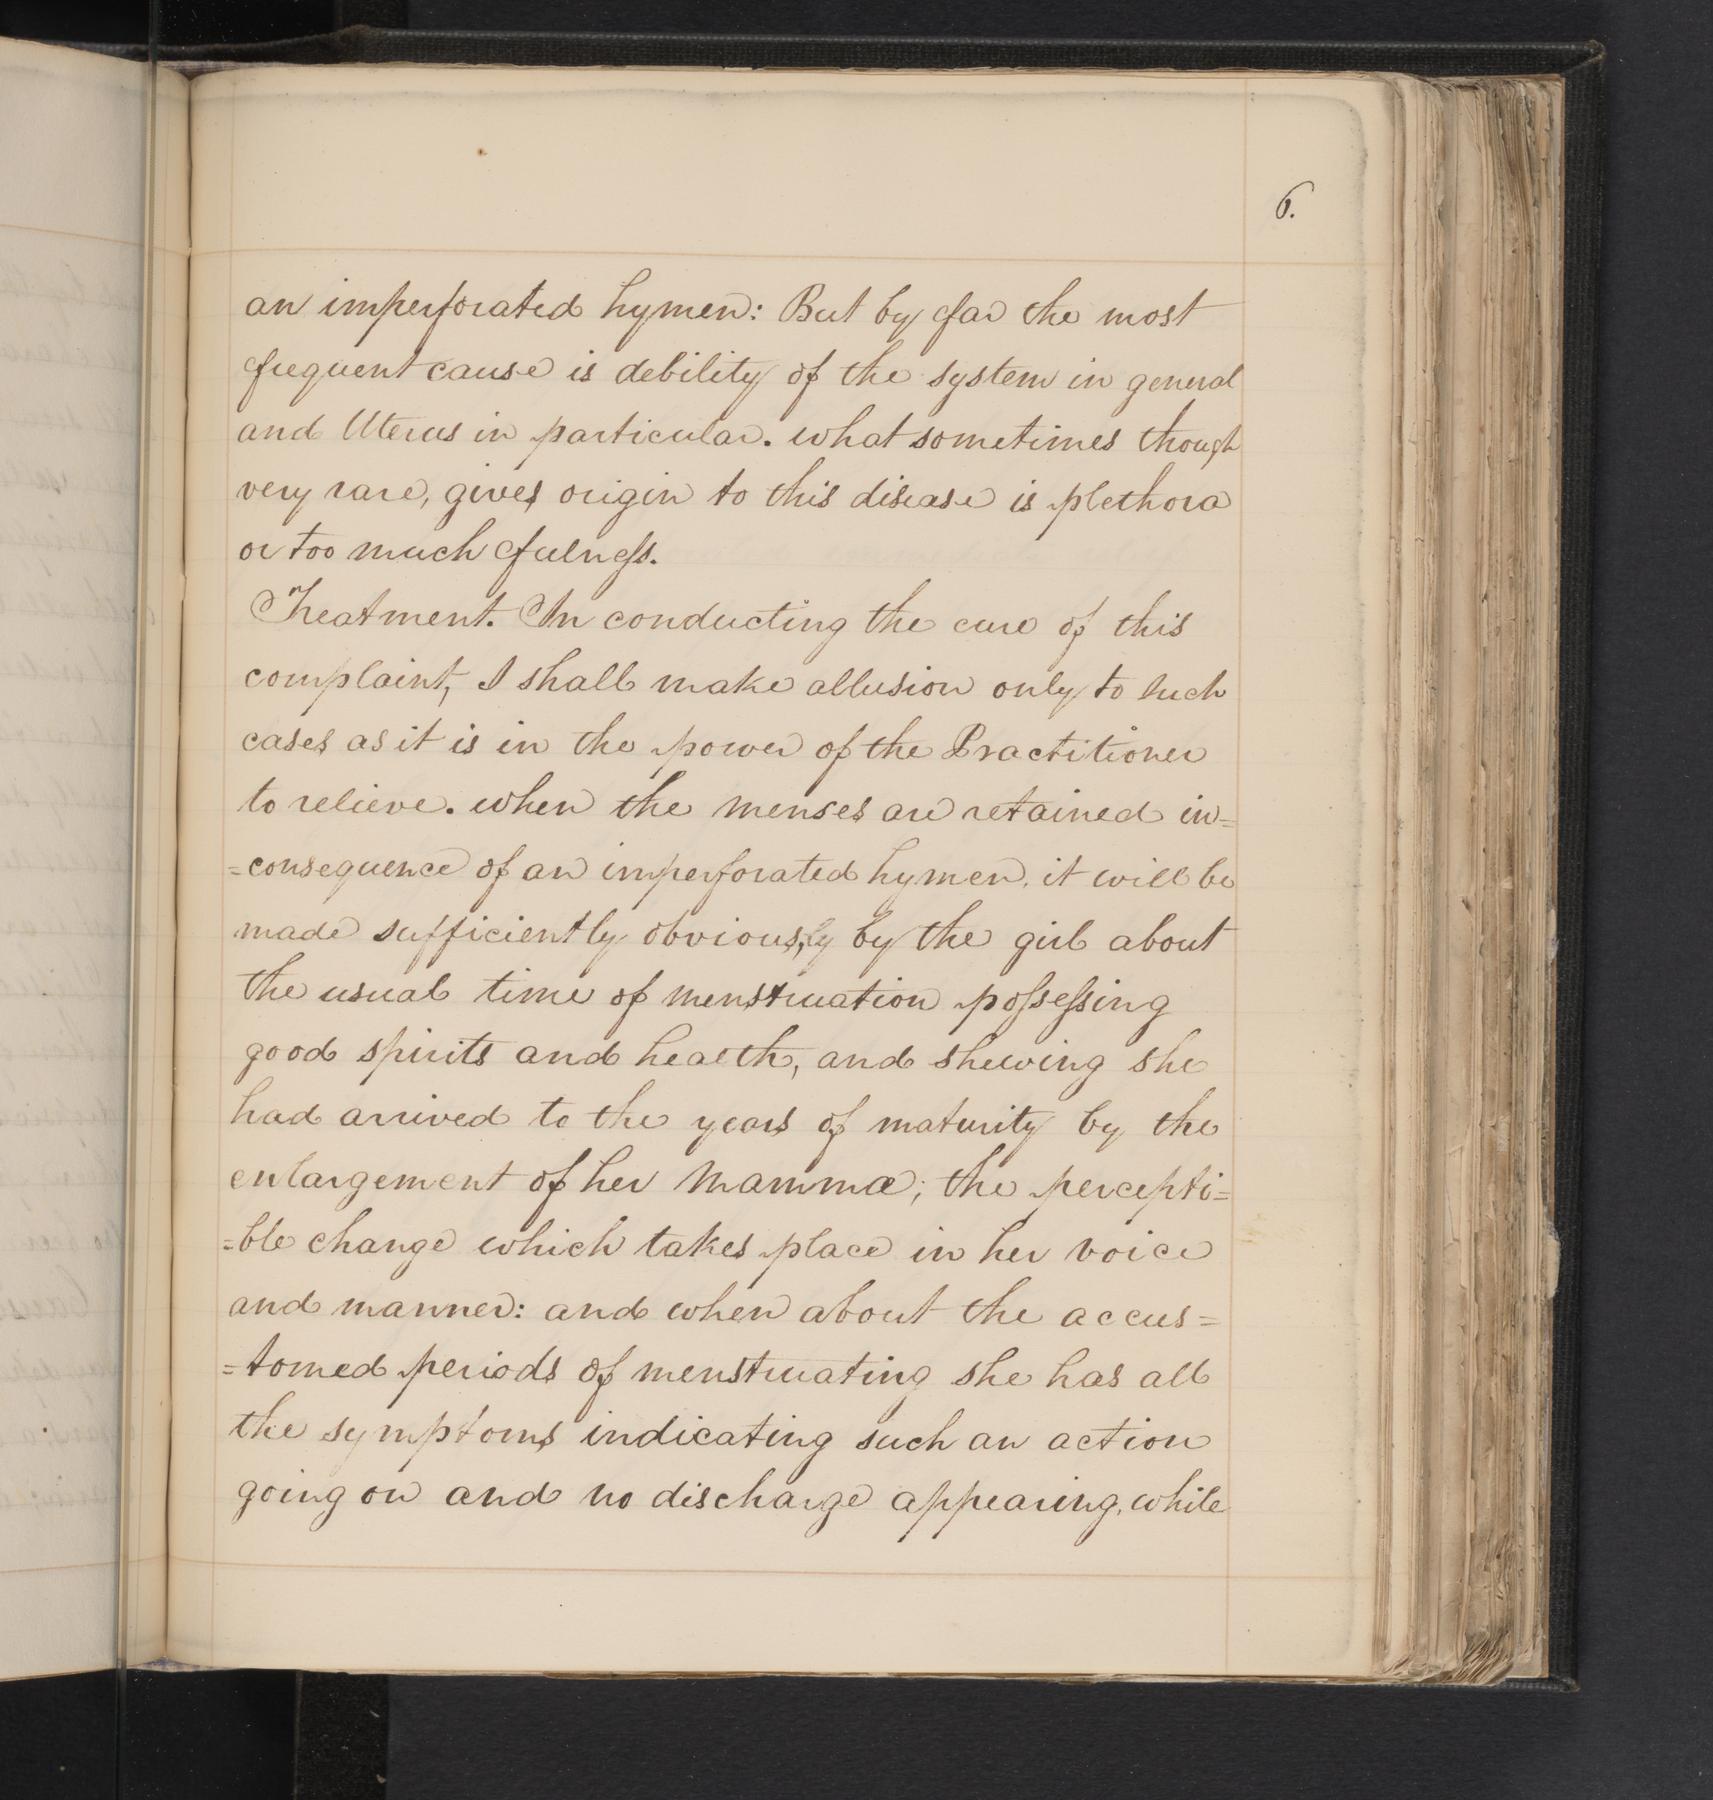 6.
an imperforated hymen: But by far the most
frequent cause is debility of the system in general
and Uterus in particular. what sometimes though
very rare, gives origin to this disease is plethora
or too much fulness.
Treatment. In conducting the cure of this
complaint, I shall make allusion only to such
cases as it is in the power of the Practitioner
to relieve. when the menses are retained in=
=consequence of an imperforated hymen, it will be
made sufficiently obvious, by the girl about
the usual time of menstruation possessing
good spirits and health, and shewing she
had arrived to the years of maturity by the
enlargement of her mammæ; the percepti=
=ble change which takes place in her voice
and manner: and when about the accus=
=tomed periods of menstruating she has all
the symptoms indicating such an action
going on and no discharge appearing, while